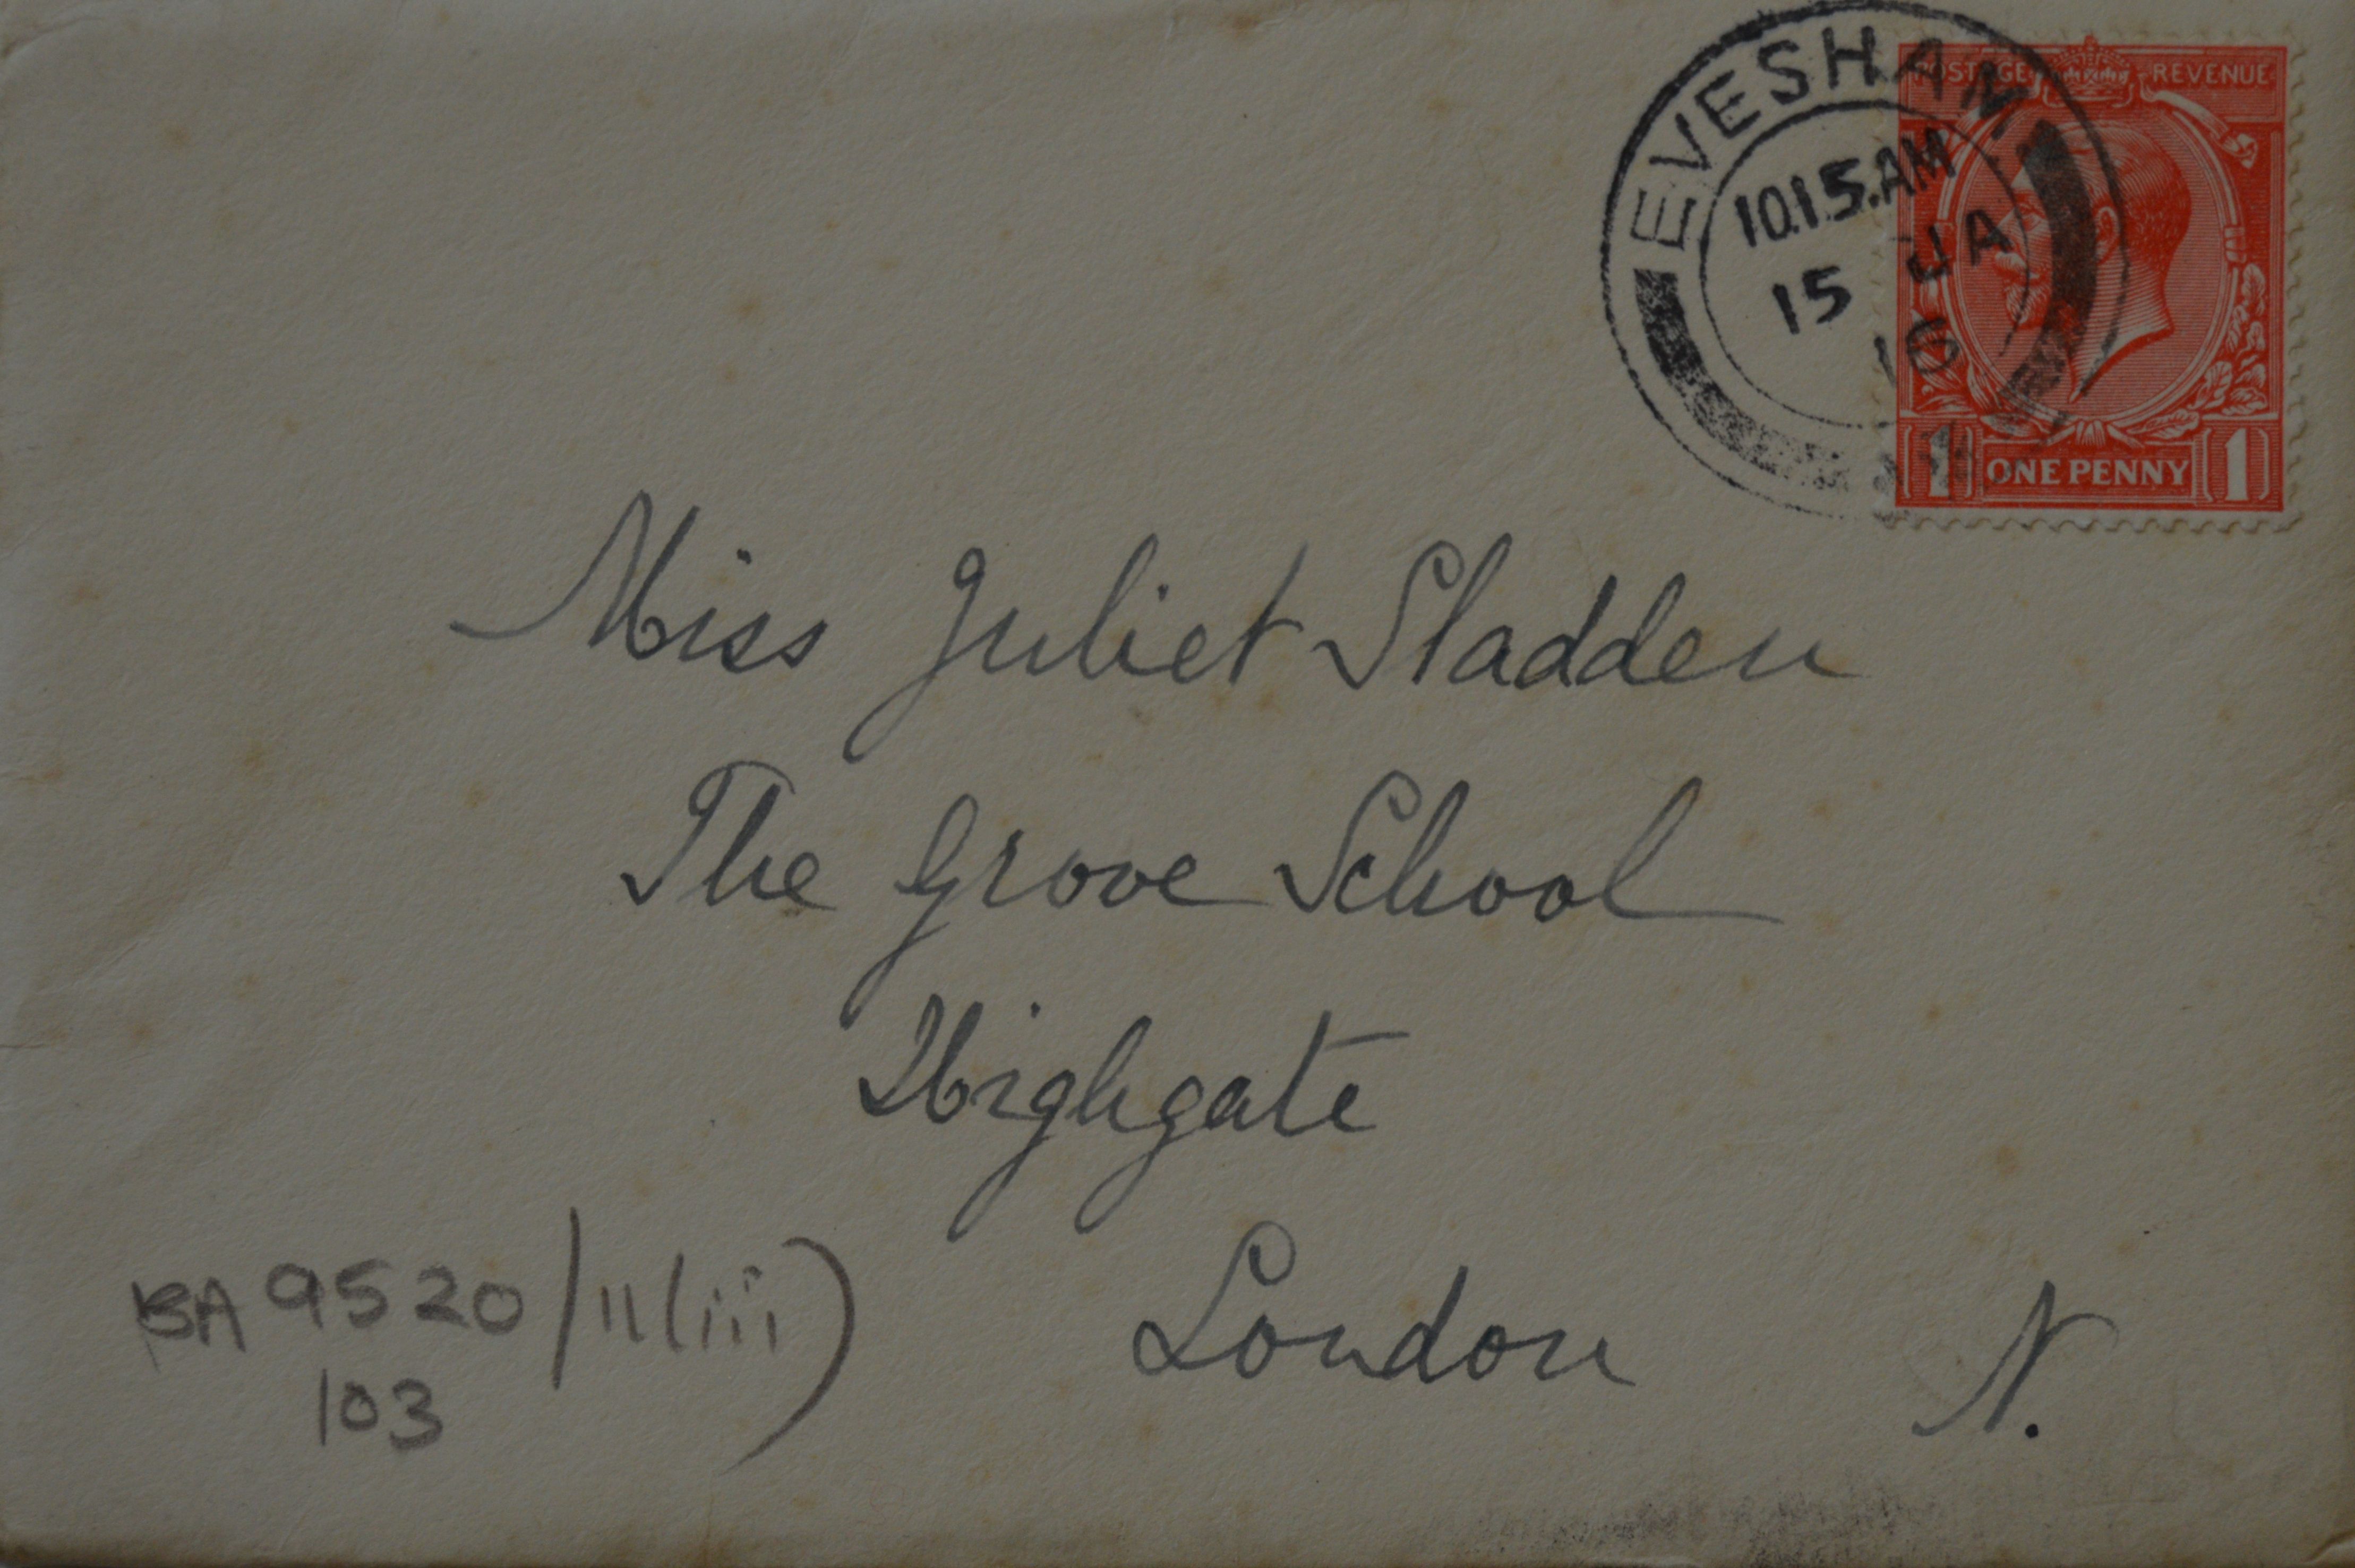 EVESHAM
10.15.AM
15 JA
16
POSTAGE REVENUE
1 ONE PENNY 1
Miss Juliet Sladden
The Grove School
Highgate
London N.
BA 9520/11(iii)
103